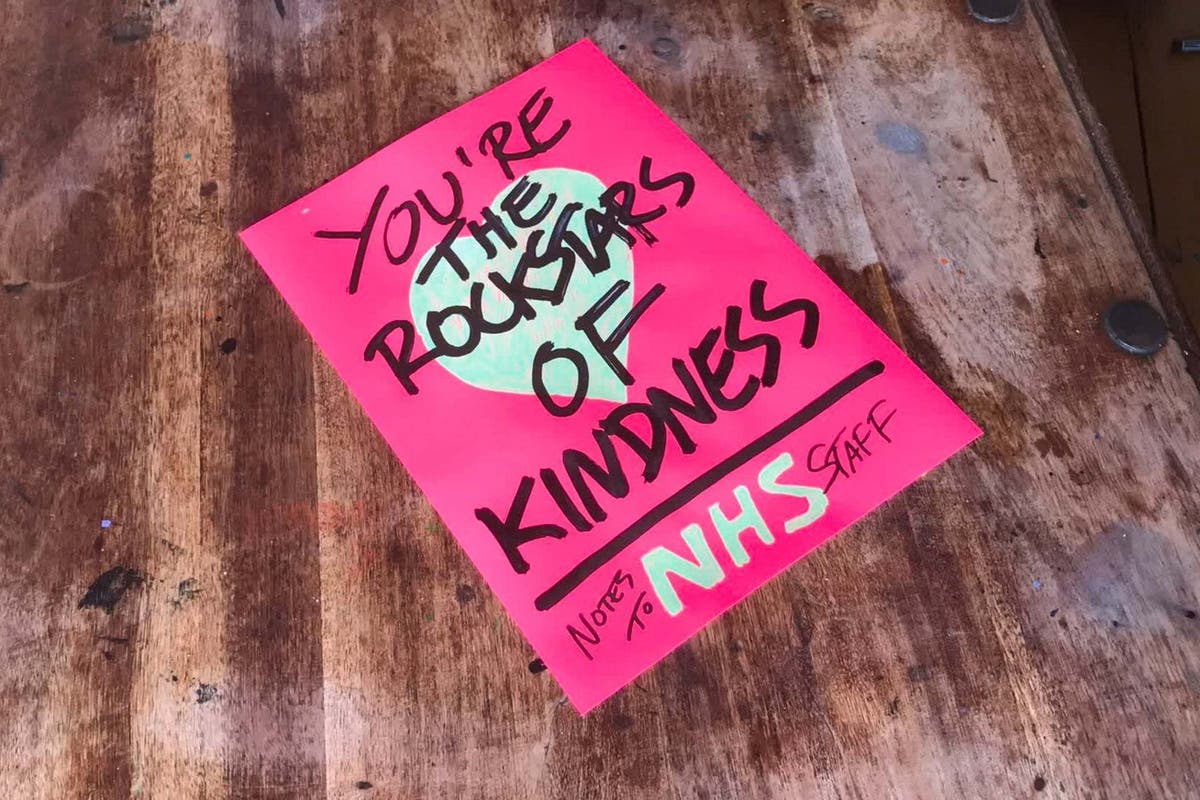 YOU'RE
THE
ROCKSTARS
OF
KINDNESS
NOTES
TO NHS STAFF